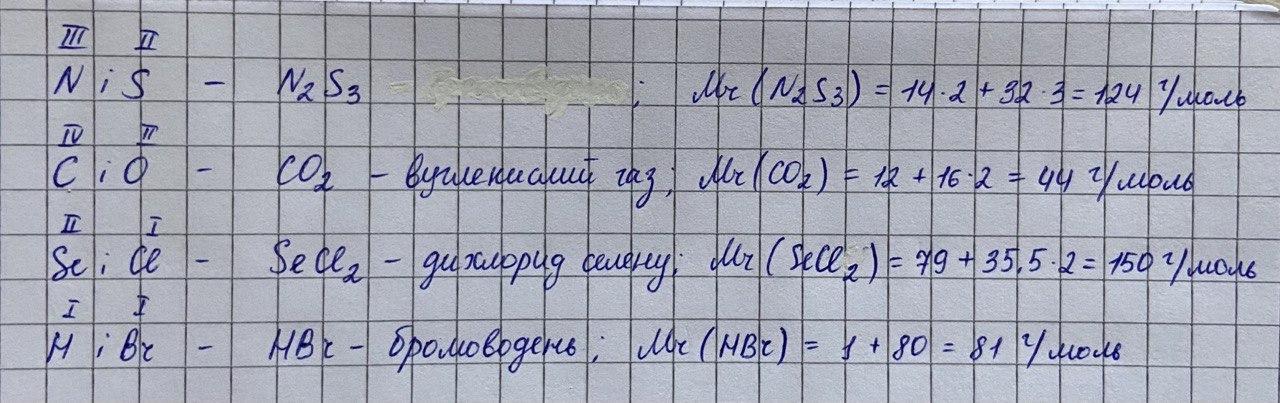 III II
N i S - N2S3 - ; Mr (N2S3) = 14·2 + 32·3 = 124 г/моль
IV II
C i O - CO2 - вуглекислий газ; Mr (CO2) = 12 + 16·2 = 44 г/моль
II I
Se i Cl - SeCl2 - дихлорид селену; Mr (SeCl2) = 79 + 35,5·2 = 150 г/моль
I I
H i Br - HBr - бромоводень; Mr (HBr) = 1 + 80 = 81 г/моль